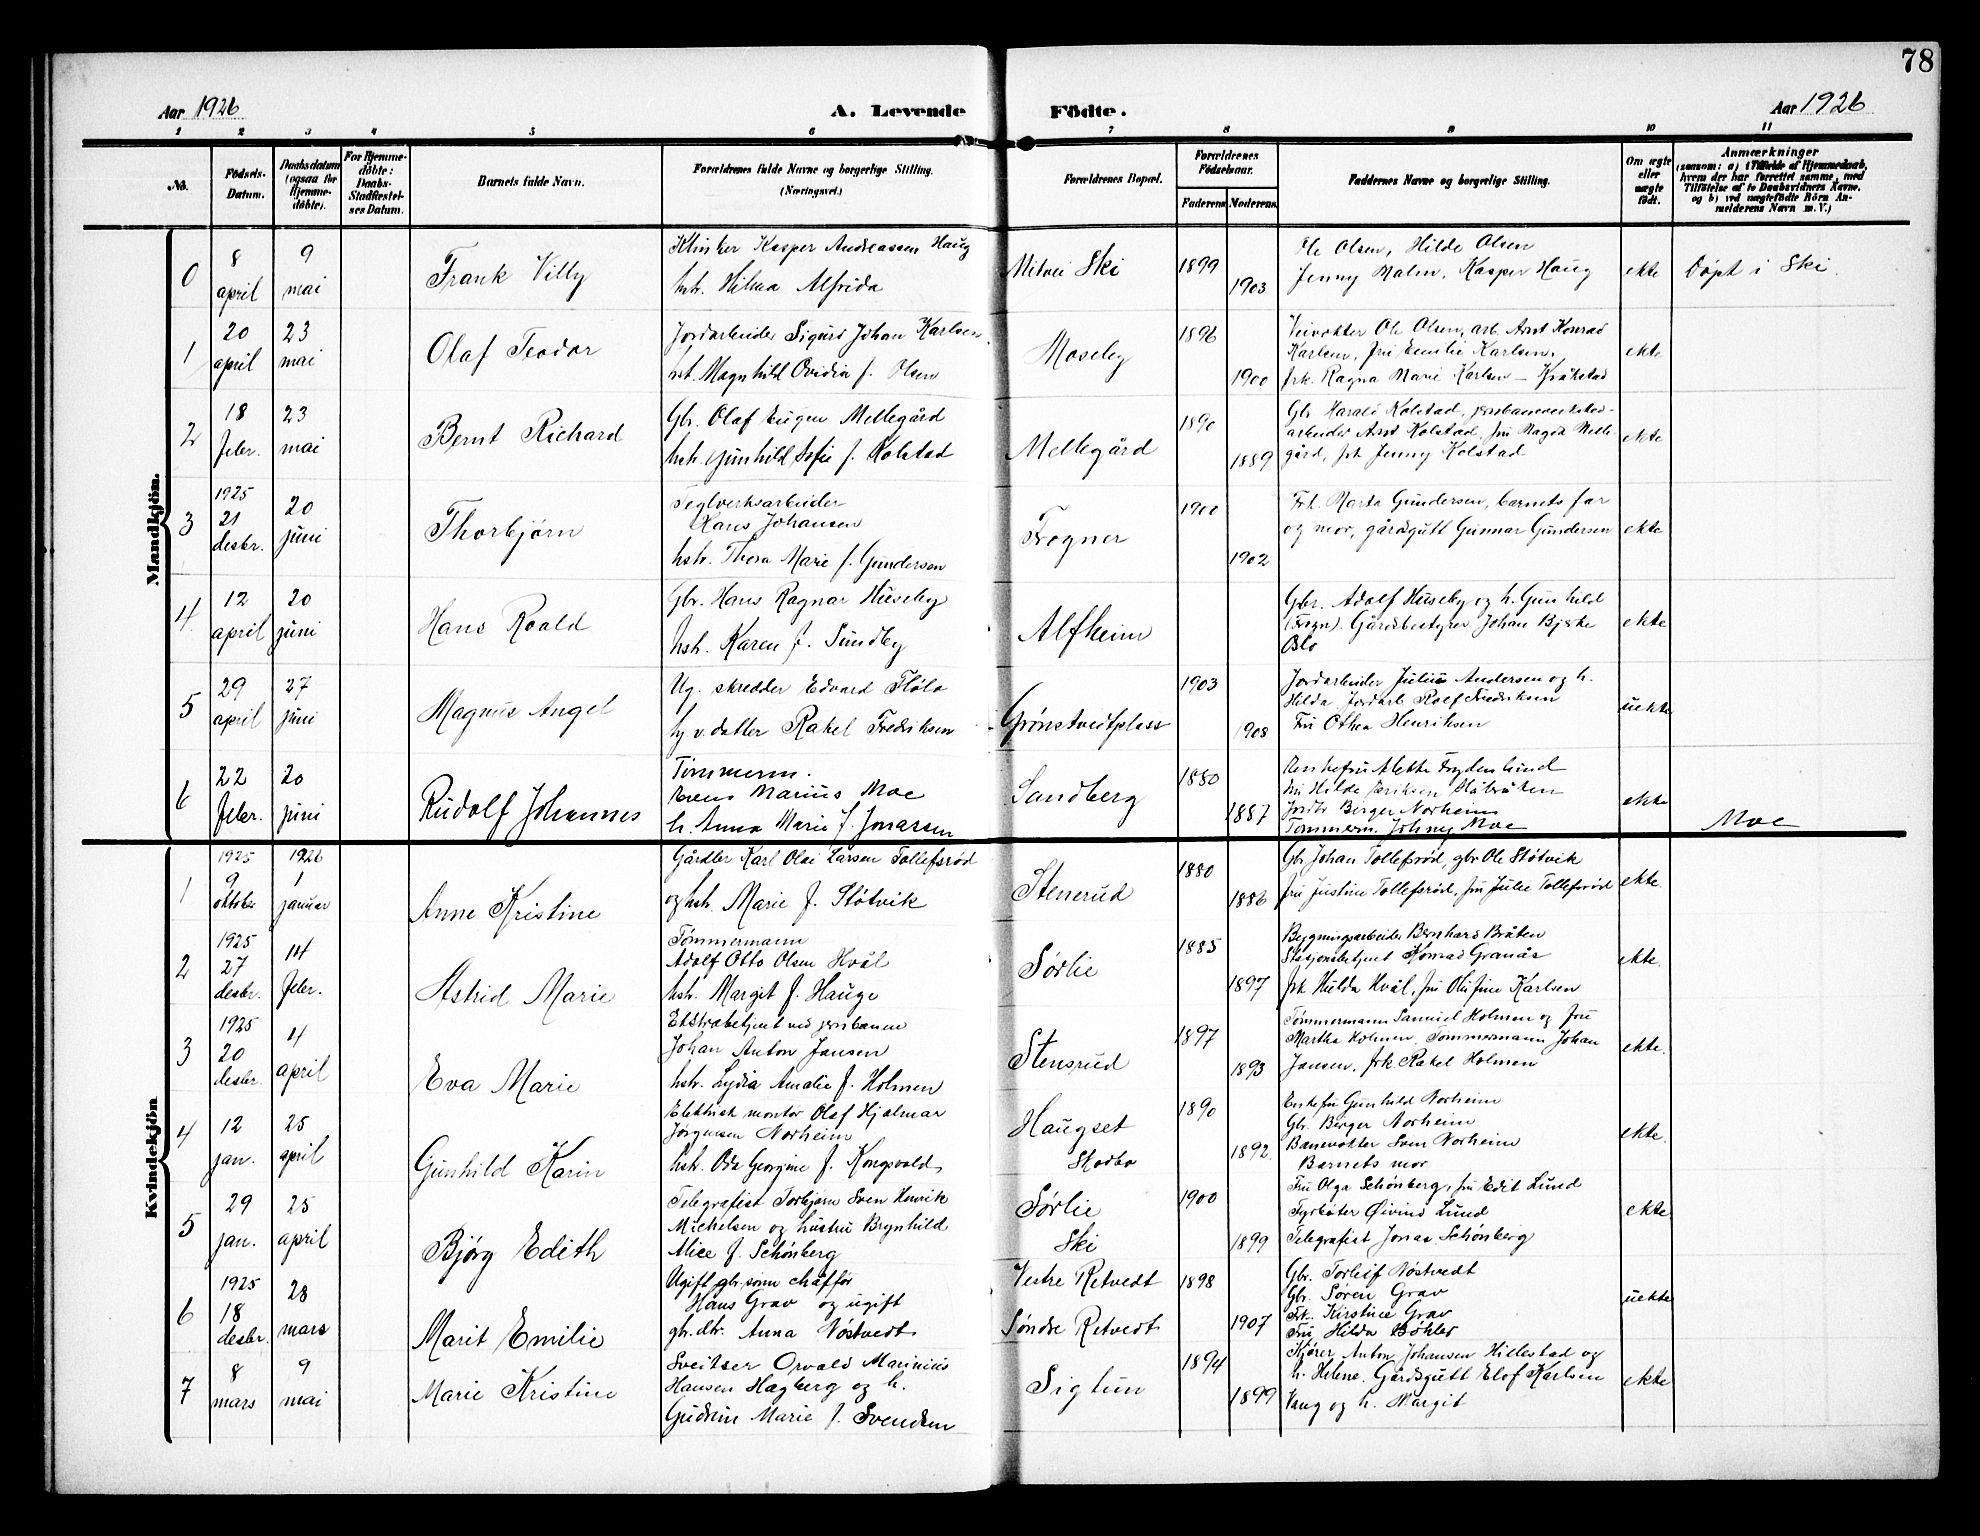 78
Aar 1926 A. Levende Födte. Aar 1926
1 2 3 4 5 6 7 8 9 10 11
No.
Födsels-Datum.
Daabsdatum (ogsaa for Hjemmedöbte).
For Hjemmedöbte: Daabs-Stadfæstelses Datum.
Barnets fulde Navn.
Forældrenes fulde Navne og borgerlige Stilling. (Næringsvei.)
Forældrenes Bopæl.
Forældrenes Födselsaar.
Faderens Moderens
Faddernes Navne og borgerlige Stilling.
Om ægte eller uægte födt.
Anmærkninger
(saasom: a) i Tilfælde af Hjemmedaab, hvem der har forrettet samme, med Tilföielse af to Daabsvidners Navne, og b) ved uægtefödte Börn Anmelderens Navn m. V.)
Mandkjön.
0
8 april
9 mai
Frank Villy
Klinker Kasper Andreassen Haug
hstr. Hilma Alfrida
Mitvei Ski
1899
1903
Ole Olsen, Hilde Olsen
Jenny Malm, Kasper Haug
ekte
Døpt i Ski.
1
20 april
23 mai
Olaf Teodor
Jordarbeider Sigurd Johan Karlsen
hst. Magnhild Ovidia f. Olsen
Moseby
1896
1900
Veivokter Ole Olsen, arb. Arnt Konrad
Karlsen, fru Emilie Karlsen,
frk. Ragna Marie Karlsen – Kråkstad
ekte
2
18 feber.
23 mai
Bernt Richard
Gbr. Olaf Eugen Mellegård
hstr. Gunhild Sofie f. Kolstad
Mellegård
1890
1889
Gbr Harald Kolstad, jernbaneverksted-
arbeider Arnt Kolstad, fru Magda Melle-
gård, frk Jenny Kolstad
ekte
3
1925 21 desbr.
20 juni
Thorbjørn
Teglverksarbeider
Hans Johansen
hstr. Thora Marie f. Gundersen
Frogner
1900
1902
Frk. Marta Gundersen, barnets far
og mor, gårdsgutt Gunnar Gundersen
ekte
4
12 april
20 juni
Hans Roald
Gbr. Hans Ragnar Huseby
hstr. Karen f. Sundby
Alfheim
Gbr. Adolf Huseby og h. Gunhild
(Fogn). Gårdsbestyrer Johan Bjerke
Oslo
ekte
5
29 april
27 juni
Magnus Angel
Ug. skredder Edvard Fløla
hj. v. datter Rakel Fredriksen
Grønstveitplass
1903
1908
Jordarbeider Julius Andersen og h.
Hilda Jordarb Rolf Fredriksen
Fru Othea Henriksen
uekte
6
22 feber.
20 juni
Rudolf Johannes
Tømmerm.
Marius Moe
h. Anna Marie f. Jonassen
Sandberg
1880
1887
Enkefru Alette Frydenlund
fru Hilde Eriksen
Jordbr Birger Norheim
Tømmerm. Johny Moe
ekte
Moe
Kvindekjön
1
1925 9 oktober
1926 1 januar
Anne Kristine
Gårdbr Karl Olai Larsen Tollefsrød
og hstr. Marie f. Støtvik
Stenerud
1880
1886
Gbr Johan Tollefsrød, gbr Ole Støtvik
fru Justine Tollefsrød, fru Julie Tollefsrød
ekte
2
1925 27 desbr.
14 feber.
Astrid Marie
Tømmermann
Adolf Otto Olsen Hvål
hstr. Margit f. Hauge
Sørlie
1885
1897
Bygningsarbeider Bernhard Bråten
Stasjonsbetjent Konrad Granås
frk Hulda Hvål, fru Olufine Karlsen
ekte.
3
1925 20 desbr.
4 april
Eva Marie
Ekstrabetjent ved jernbanen
Johan Anton Jansen
hstr. Lydia Amalie f. Holmen
Stensrud
1897
1893
Tømmermann Samuel Holmen og fru
Martha Holmen. Tømmermann Johan
Jansen, frk Rakel Holmen
ekte.
4
12 jan.
25 april
Gunhild Karin
Elektrisk montør Olaf Hjalmar
Jørgensen Norheim
hstr. Oda Georgine f. Kongsvold
Haugset
Skodbo
1890
1892.
Enkefru Gunhild Norheim
Gbr. Birger Norheim
Banevokter Sven Norheim
Barnets mor
ekte.
5
29 jan.
25 april
Bjørg Edith
Telegrafist Torbjørn Sven Henrik
Michelsen og hustru Brynhild
Alice f. Schönberg
Sørlie
Ski
1900
1899
Fru Olga Schönberg, fru Edit Lund
Fyrbøter Øivind Lund
Telegrafist Jonas Schönberg
ekte
6
1925 18 desbr.
28 mars
Marit Emilie
Ugift gbr. sønn chaffør
Hans Grav og ugift
gb. dtr. Anna Nøstvedt
Vestre Retvedt
Søndre Retvedt
1898
1907
Gbr. Torleif Nøstvedt
Gbr. Søren Grav
Frk. Kirstine Grav
Fru Hilda Bøhler
uekte
7
8 mars
9 mai
Marie Kristine
Sveitser Orvald Marinius
Hansen Hagberg og h.
Gudrun Marie f. Svendsen
Sigtun
1894
1899
Kjører Anton Johansen Hillestad og
h. Helene. Gårdsgutt Elof Karlsen
Haug og h. Margit
ekte